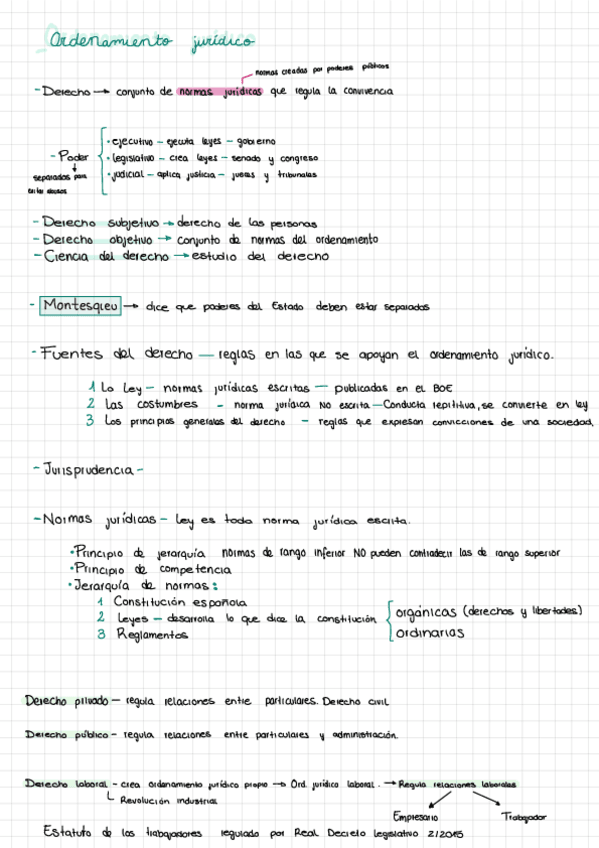 Ordenamiento jurídico
normas creadas por poderes públicos
- Derecho → conjunto de normas jurídicas que regula la convivencia
• ejecutivo – ejecuta leyes – gobierno
- Poder
• legislativo – crea leyes – senado y congreso
• judicial – aplica justicia – jueces y tribunales
separados para
evitar abusos
- Derecho subjetivo → derecho de las personas
- Derecho objetivo → conjunto de normas del ordenamiento
- Ciencia del derecho → estudio del derecho
- Montesqieu → dice que poderes del Estado deben estar separados
- Fuentes del derecho — reglas en las que se apoyan el ordenamiento jurídico.
1 La Ley – normas jurídicas escritas — publicadas en el BOE
2 Las costumbres - norma jurídica NO escrita — Conducta repititiva, se convierte en ley
3 Los principios generales del derecho - reglas que expresan convicciones de una sociedad.
- Jurisprudencia -
- Normas jurídicas – Ley es toda norma jurídica escrita.
• Principio de jerarquía normas de rango inferior NO pueden contradecir las de rango superior
• Principio de competencia
• Jerarquía de normas:
1 Constitución española
2 Leyes – desarrolla lo que dice la constitución
orgánicas (derechos y libertades)
ordinarias
3 Reglamentos
Derecho privado – regula relaciones entre particulares. Derecho civil
Derecho público – regula relaciones entre particulares y administración.
Derecho laboral - crea ordenamiento jurídico propio → Ord. jurídico laboral. → Regula relaciones laborales
Revolución industrial
Empresario Trabajador
Estatuto de los trabajadores regulado por Real Decreto legislativo 2/2015